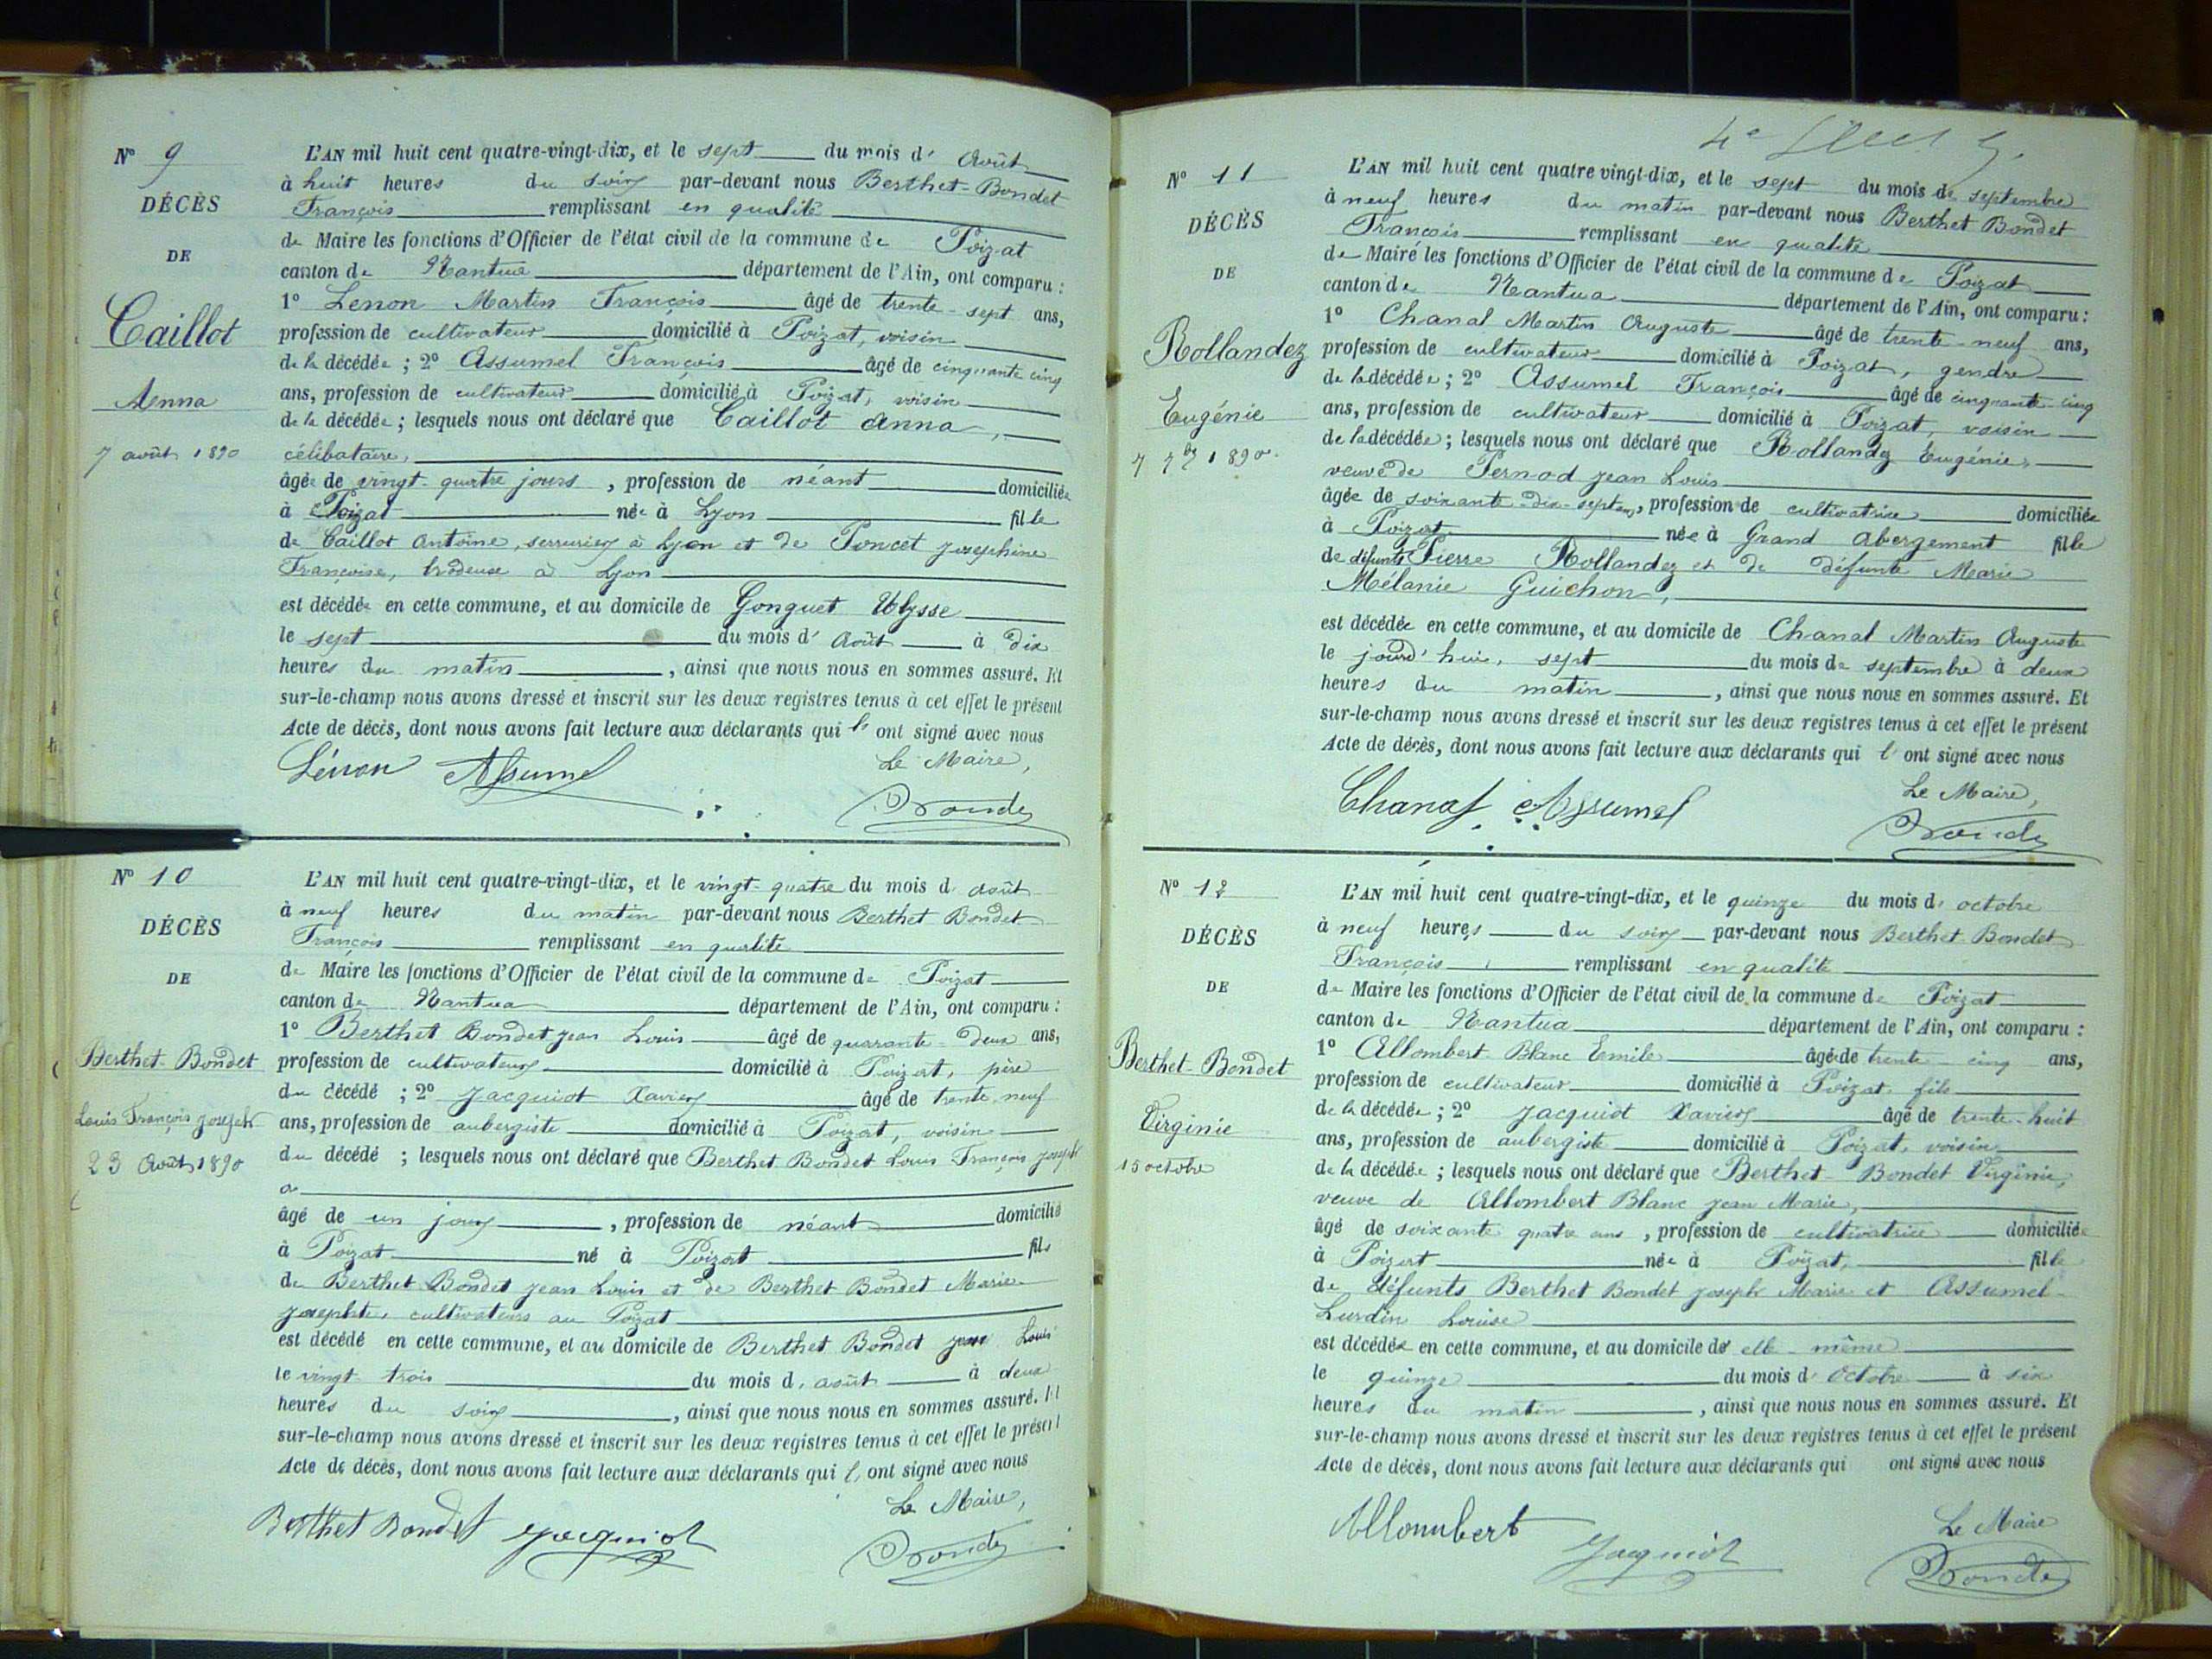 N° 9
DÉCÈS
DE
Caillot
Anna
7 août 1890
L'AN mil huit cent quatre-vingt-dix, et le sept du mois d' Août
à huit heures du soir par-devant nous Berthet-Bondet
François remplissant en qualité
de Maire les fonctions d'Officier de l'état civil de la commune de Poizat
canton de Nantua département de l'Ain, ont comparu :
1° Lenon Martin François âgé de trente-sept ans,
profession de cultivateur domicilié à Poizat, voisin
de la décédée ; 2° Assumel François âgé de cinquante cinq
ans, profession de cultivateur domicilié à Poizat, voisin
de la décédée ; lesquels nous ont déclaré que Caillot Anna,
célibataire,
âgée de vingt-quatre jours, profession de néant domiciliée
à Poizat née à Lyon fille
de Caillot Antoine, serrurier à Lyon et de Poncet Joséphine
Françoise, brodeuse à Lyon
est décédée en cette commune, et au domicile de Gonguet Ulysse
le sept du mois d' Août à dix
heures du matin, ainsi que nous nous en sommes assuré. Et
sur-le-champ nous avons dressé et inscrit sur les deux registres tenus à cet effet le présent
Acte de décès, dont nous avons fait lecture aux déclarants qui l' ont signé avec nous
Le Maire,
Lénon Assumel
N° 10
DÉCÈS
DE
Berthet-Bondet
Louis François Joseph
23 Août 1890
L'AN mil huit cent quatre-vingt-dix, et le vingt-quatre du mois d' août
à neuf heures du matin par-devant nous Berthet Bondet
François remplissant en qualité
de Maire les fonctions d'Officier de l'état civil de la commune de Poizat
canton de Nantua département de l'Ain, ont comparu :
1° Berthet Bondet Jean Louis âgé de quarante-deux ans,
profession de cultivateur domicilié à Poizat, père
du décédé ; 2° Jacquiot Xavier âgé de trente neuf
ans, profession de aubergiste domicilié à Poizat, voisin
du décédé ; lesquels nous ont déclaré que Berthet Bondet Louis François Joseph
âgé de un jour, profession de néant domicilié
à Poizat né à Poizat fils
de Berthet Bondet Jean Louis et de Berthet Bondet Marie
Josephte, cultivateurs au Poizat
est décédé en cette commune, et au domicile de Berthet Bondet Jean Louis
le vingt trois du mois d' août à deux
heures du soir, ainsi que nous nous en sommes assuré. Et
sur-le-champ nous avons dressé et inscrit sur les deux registres tenus à cet effet le présent
Acte de décès, dont nous avons fait lecture aux déclarants qui l' ont signé avec nous
Le Maire,
Berthet Bondet Jacquiot
N° 11
DÉCÈS
DE
Rollandez
Eugénie
7 7bre 1890.
L'AN mil huit cent quatre vingt-dix, et le sept du mois de septembre
à neuf heures du matin par-devant nous Berthet Bondet
François remplissant en qualité
de Maire les fonctions d'Officier de l'état civil de la commune de Poizat
canton de Nantua département de l'Ain, ont comparu :
1° Chanal Martin Auguste âgé de trente-neuf ans,
profession de cultivateur domicilié à Poizat, gendre
de la décédée ; 2° Assumel François âgé de cinquante-cinq
ans, profession de cultivateur domicilié à Poizat, voisin
de la décédée ; lesquels nous ont déclaré que Rollandez Eugénie,
veuve de Pernod Jean Louis
âgée de soixante-dix-sept ans, profession de cultivatrice domiciliée
à Poizat née à Grand Abergement fille
de défunts Pierre Rollandez et de défunte Marie
Mélanie Guichon,
est décédée en cette commune, et au domicile de Chanal Martin Auguste
le jourd'hui, sept du mois de septembre à deux
heures du matin, ainsi que nous nous en sommes assuré. Et
sur-le-champ nous avons dressé et inscrit sur les deux registres tenus à cet effet le présent
Acte de décès, dont nous avons fait lecture aux déclarants qui l' ont signé avec nous
Le Maire,
Chanal Assumel
N° 12
DÉCÈS
DE
Berthet-Bondet
Virginie
15 octobre
L'AN mil huit cent quatre-vingt-dix, et le quinze du mois d' octobre
à neuf heures du soir par-devant nous Berthet-Bondet
François remplissant en qualité
de Maire les fonctions d'Officier de l'état civil de la commune de Poizat
canton de Nantua département de l'Ain, ont comparu :
1° Allombert-Blanc Emile âgé de trente-cinq ans,
profession de cultivateur domicilié à Poizat, fils
de la décédée ; 2° Jacquiot Xavier âgé de trente-huit
ans, profession de aubergiste domicilié à Poizat, voisin
de la décédée ; lesquels nous ont déclaré que Berthet-Bondet Virginie,
veuve de Allombert Blanc Jean Marie,
âgé de soixante quatre ans, profession de cultivatrice domiciliée
à Poizat née à Poizat, fille
de défunts Berthet Bondet Joseph Marie et Assumel-
Lurdin Louise
est décédée en cette commune, et au domicile de elle-même
le quinze du mois d' Octobre à six
heures du matin, ainsi que nous nous en sommes assuré. Et
sur-le-champ nous avons dressé et inscrit sur les deux registres tenus à cet effet le présent
Acte de décès, dont nous avons fait lecture aux déclarants qui ont signé avec nous
Le Maire
Allombert Jacquiot